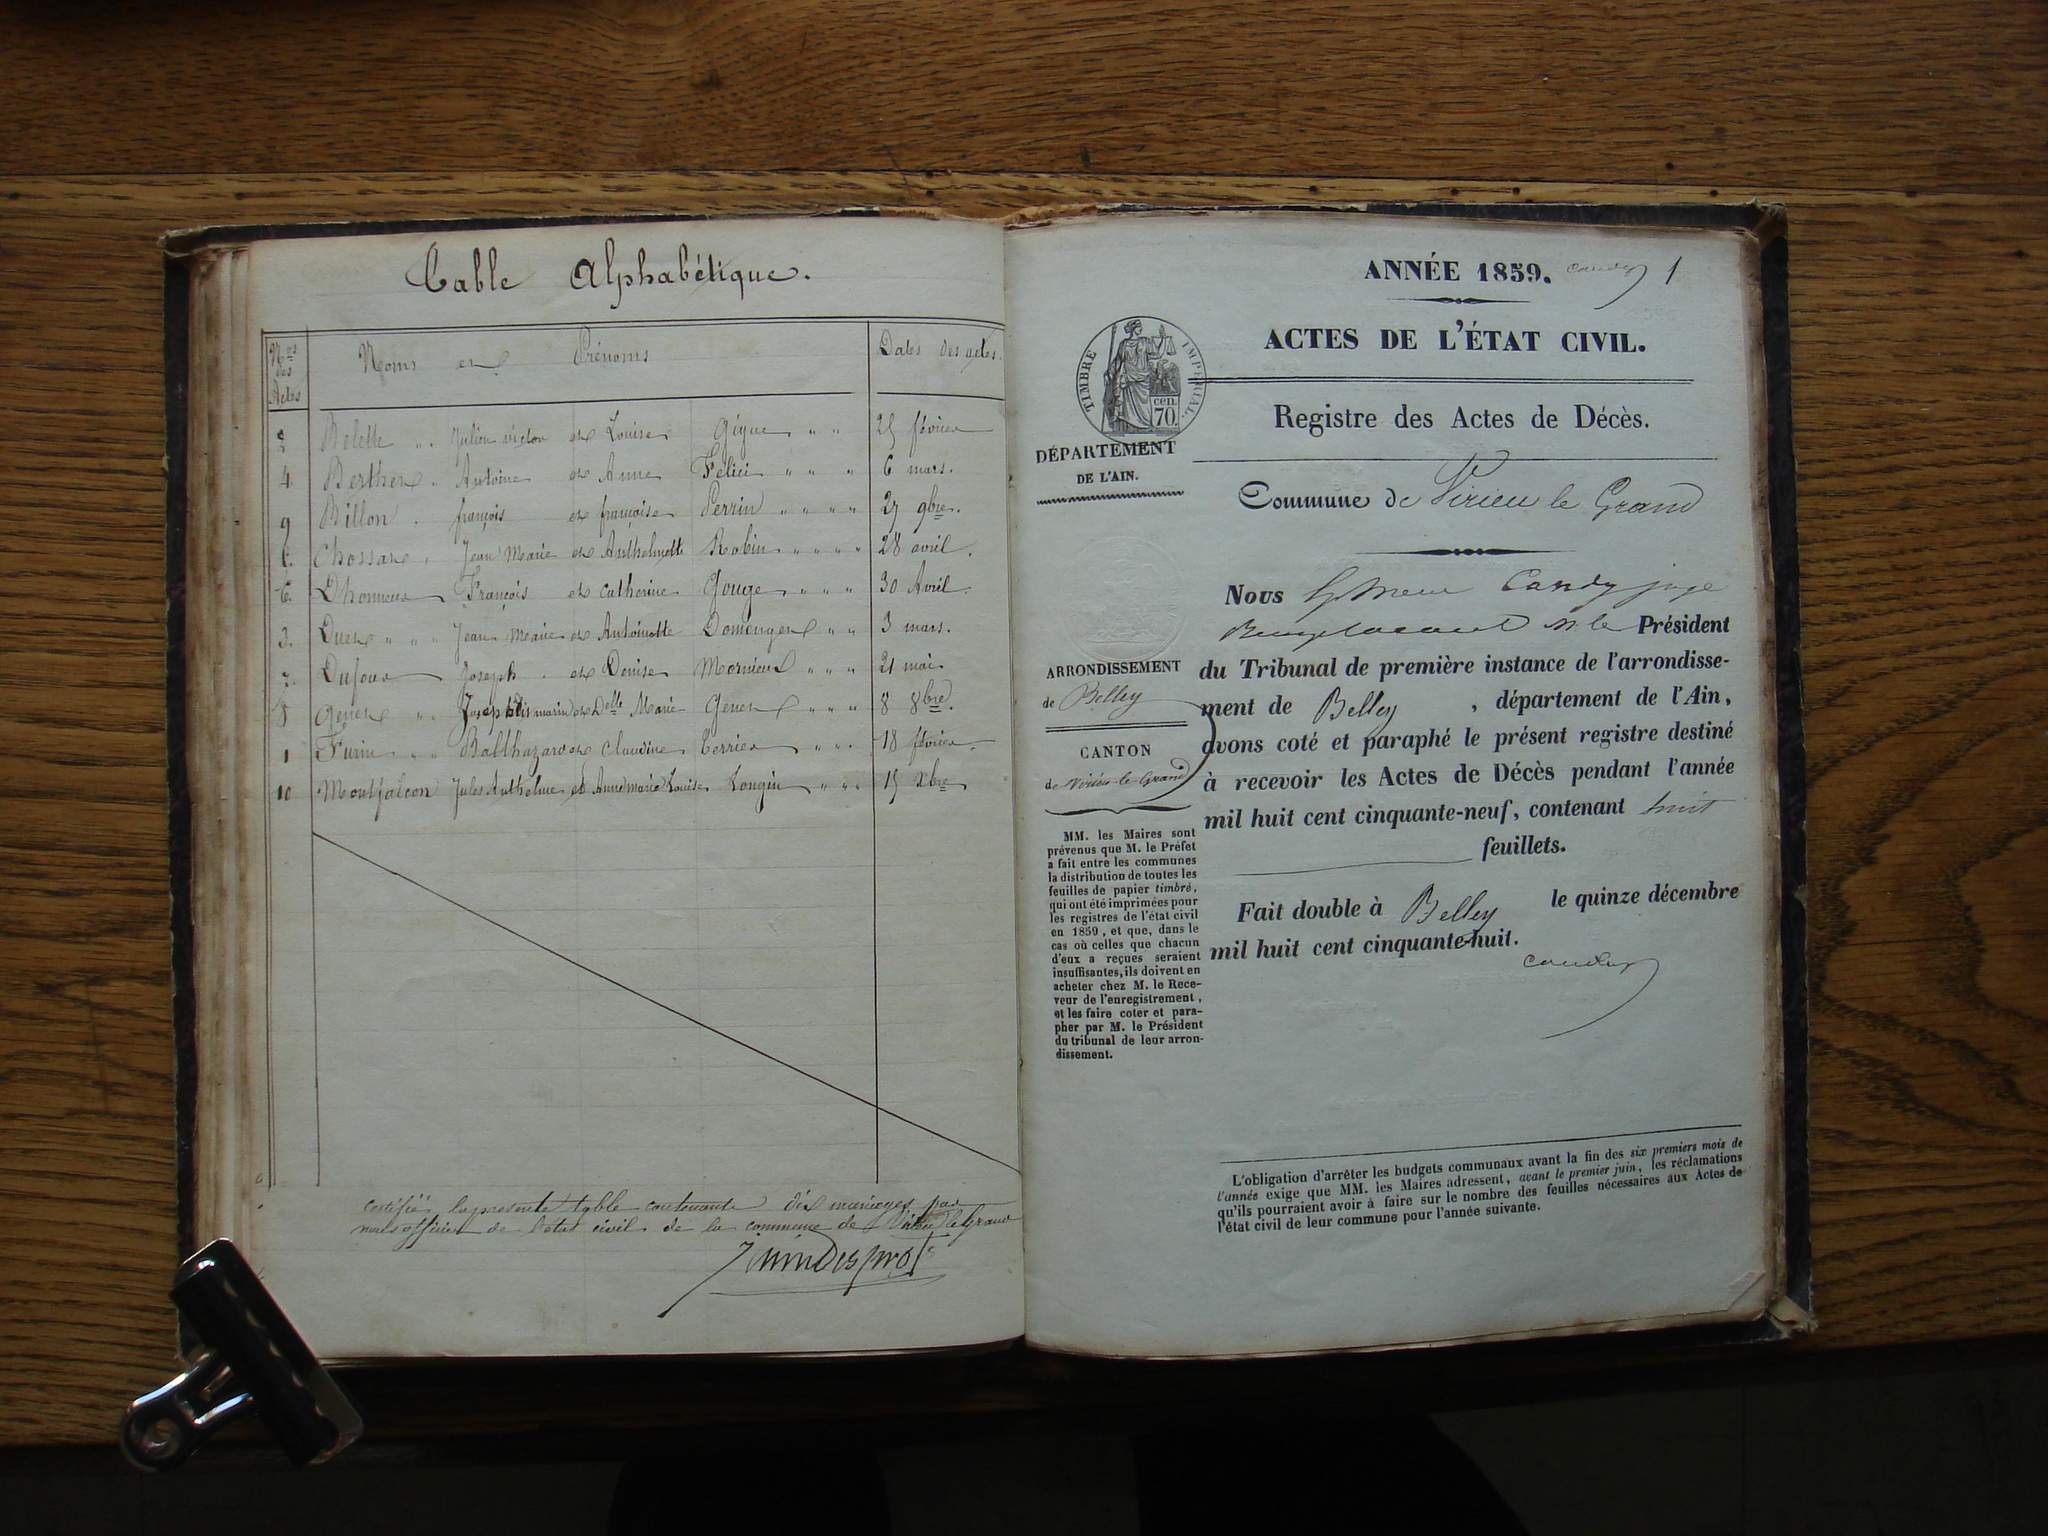 Table Alphabétique.
Nos des Actes
Noms et Prénoms
Dates des actes.
2 Belette " . Julien victor et Louise Gigue " " 25 février
4. Berthet " Antoine et Anne Félici " " " 6 mars.
9 Billon . françois et françoise Perrin " " " " 27 9bre.
Jean Marie et Anthelmette Robin " " " " 28 avril.
6. Dhonneur François et Catherine Gouge " " " 30 Avril.
3. " " " Jean Marie et Antoinette Domenget " " 3 mars.
7. Dufour Joseph . et Denise Mornieux " " " 21 mai
8 Genet " . Joseph marin et Delle Marie Genet " " " 8 8bre.
1 " " Balthazard et Claudine Terrier " " . 18 février.
10 Montfalcon Jules Anthelme et Anne marie Louise Longin " " . 15 Xbre
certifiée la presente table contenant dix mariages par
nous officier de l'etat civil de la commune de Virieu le Grand
ANNÉE 1859. Candy 1
ACTES DE L'ÉTAT CIVIL.
TIMBRE IMPÉRIAL.
cen.
70.
Registre des Actes de Décès.
DÉPARTEMENT
DE L'AIN.
Commune de Virieu le Grand
Nous Candy juge
Président
du Tribunal de première instance de l'arrondisse-
ment de Belley , département de l'Ain,
avons coté et paraphé le présent registre destiné
à recevoir les Actes de Décès pendant l'année
mil huit cent cinquante-neuf, contenant huit
feuillets.
Fait double à Belley le quinze décembre
mil huit cent cinquante-huit.
Candy
ARRONDISSEMENT
de Belley
CANTON
de Virieu-le-Grand
MM. les Maires sont
prévenus que M. le Préfet
a fait entre les communes
la distribution de toutes les
feuilles de papier timbré,
qui ont été imprimées pour
les registres de l'état civil
en 1859, et que, dans le
cas où celles que chacun
d'eux a reçues seraient
insuffisantes, ils doivent en
acheter chez M. le Rece-
veur de l'enregistrement,
et les faire coter et para-
pher par M. le Président
du tribunal de leur arron-
dissement.
L'obligation d'arrêter les budgets communaux avant la fin des six premiers mois de
l'année exige que MM. les Maires adressent, avant le premier juin, les réclamations
qu'ils pourraient avoir à faire sur le nombre des feuilles nécessaires aux Actes de
l'état civil de leur commune pour l'année suivante.